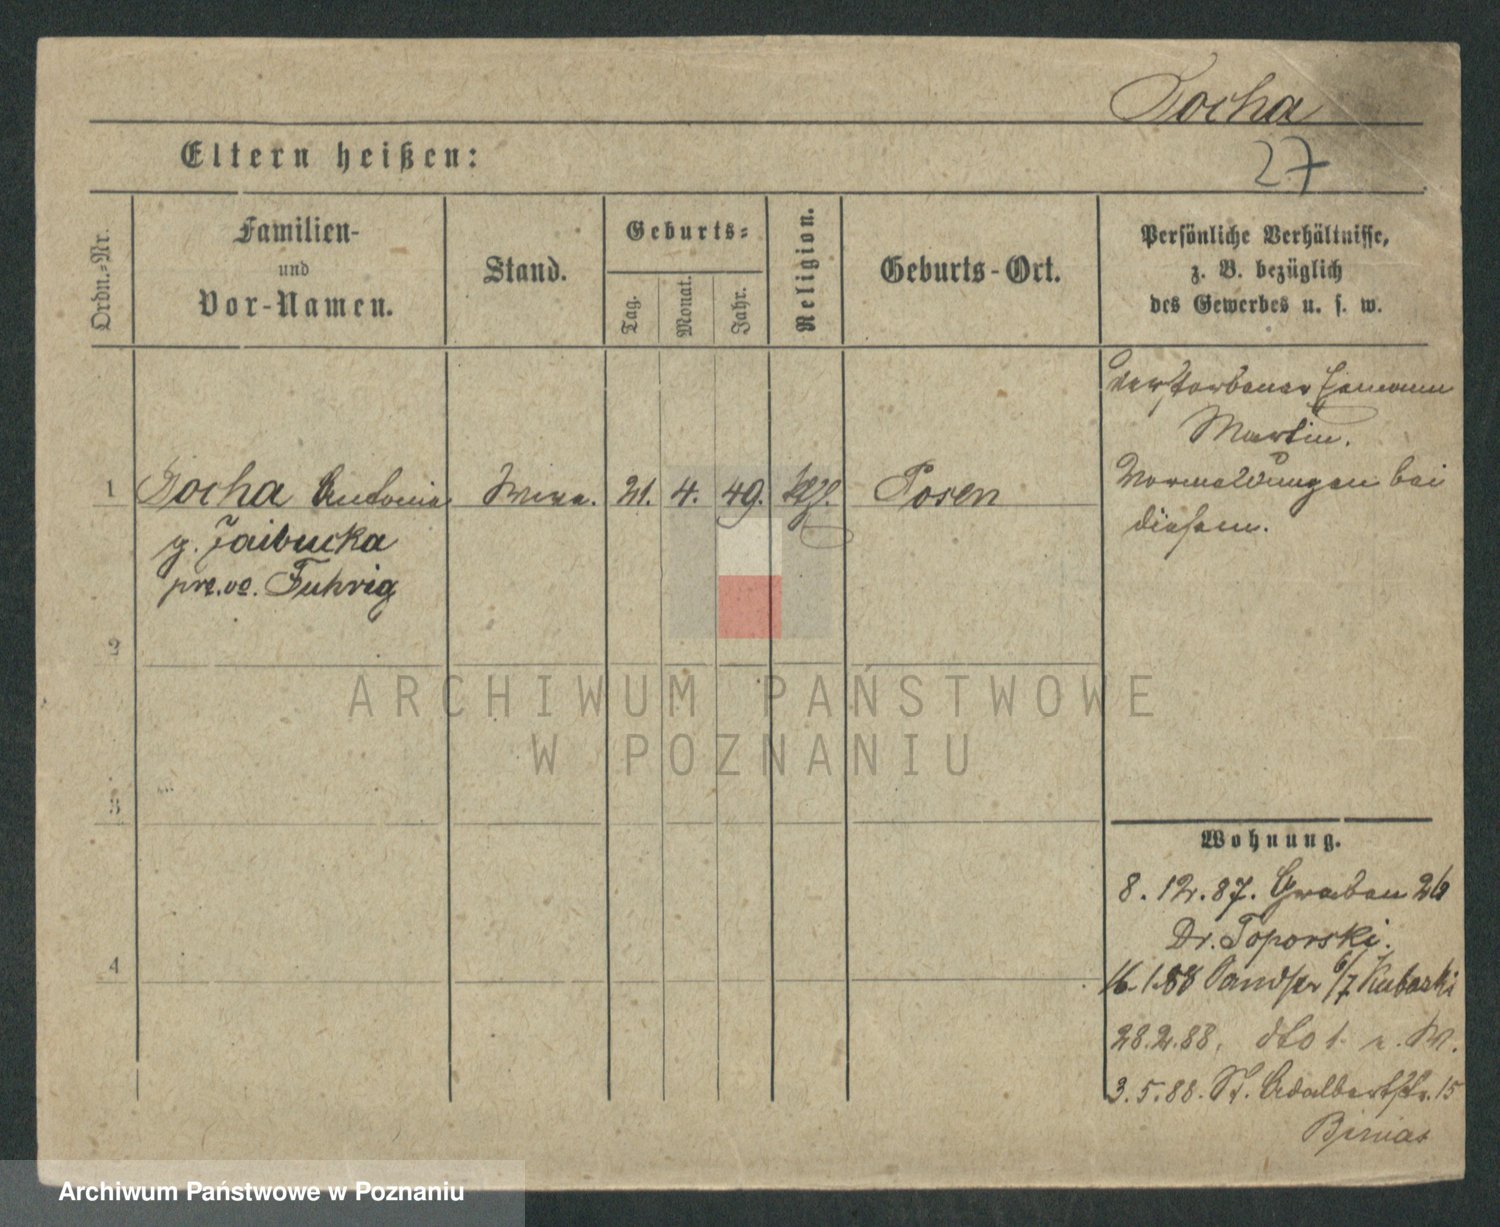 Tocha
Eltern heißen:
27
Ordn.-Nr.
Familien-
und
Vor-Namen.
Stand.
Geburts-
Tag.
Monat.
Jahr.
Religion.
Geburts-Ort.
Persönliche Verhältnisse,
z. B. bezüglich
des Gewerbes u. s. w.
verstorbener Ehemann
Martin.
Vormeldungen bei
diesem.
1 Tocha Antonie 21. 4. 49. Posen
g.
Fuhrig
2
3
4
ARCHIWUM PAŃSTWOWE
W POZNANIU
Wohnung.
8.12.87. Graben 26
Dr. Toporski.
16.1.88 6/7
28.2.88. dto
3.5.88. St. Adalbertstr. 15
Archiwum Państwowe w Poznaniu